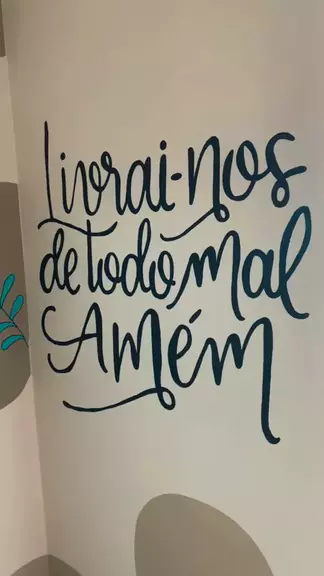 Livrai-nos
de todo mal
Amém